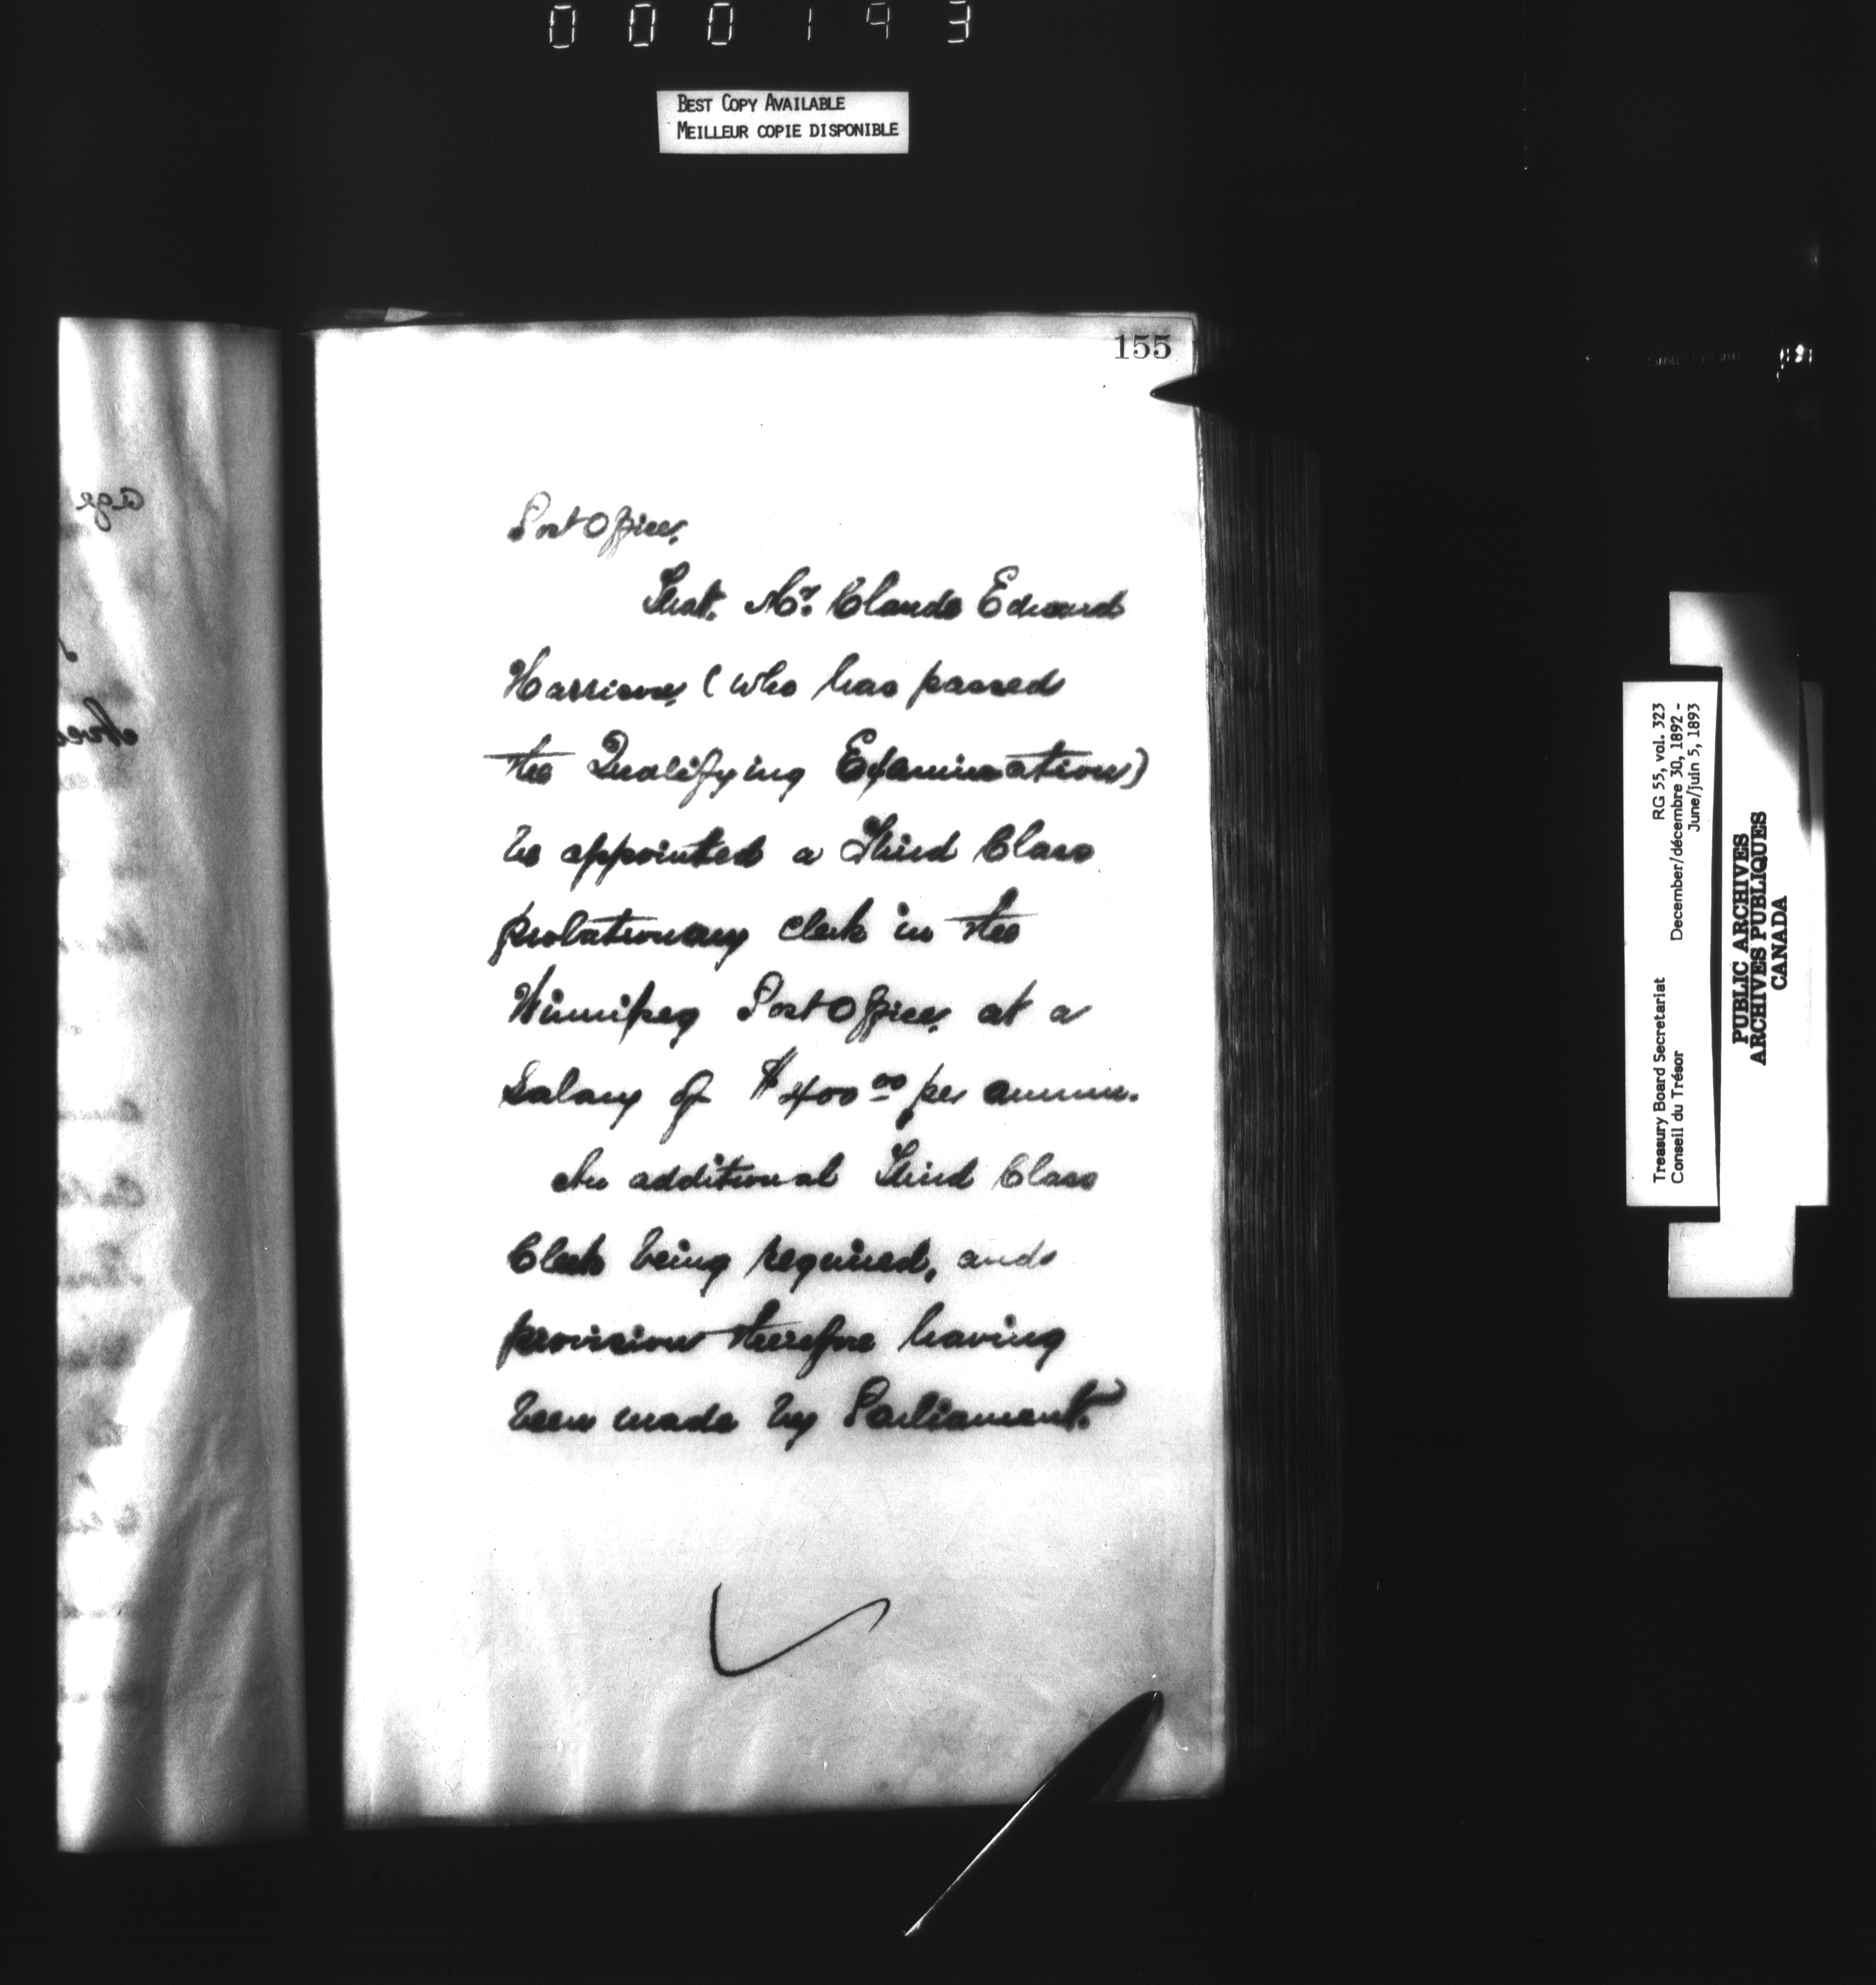 000193
BEST COPY AVAILABLE
MEILLEUR COPIE DISPONIBLE
155
Post Office,
That Mr. Claude Edward
Harrison, (who has passed
the Qualifying Examination)
be appointed a Third Class
probationary clerk in the
Winnipeg Post Office, at a
Salary of $400.00 per annum.
An additional Third Class
Clerk being required, and
provision therefore having
been made by Parliament.
Treasury Board Secretariat RG 55, vol. 323
Conseil du Trésor December/décembre 30, 1892 -
June/juin 5, 1893
PUBLIC ARCHIVES
ARCHIVES PUBLIQUES
CANADA